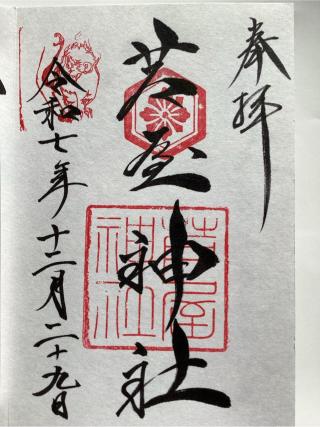 奉拝
芦屋神社
芦屋神社
令和七年十二月二十九日